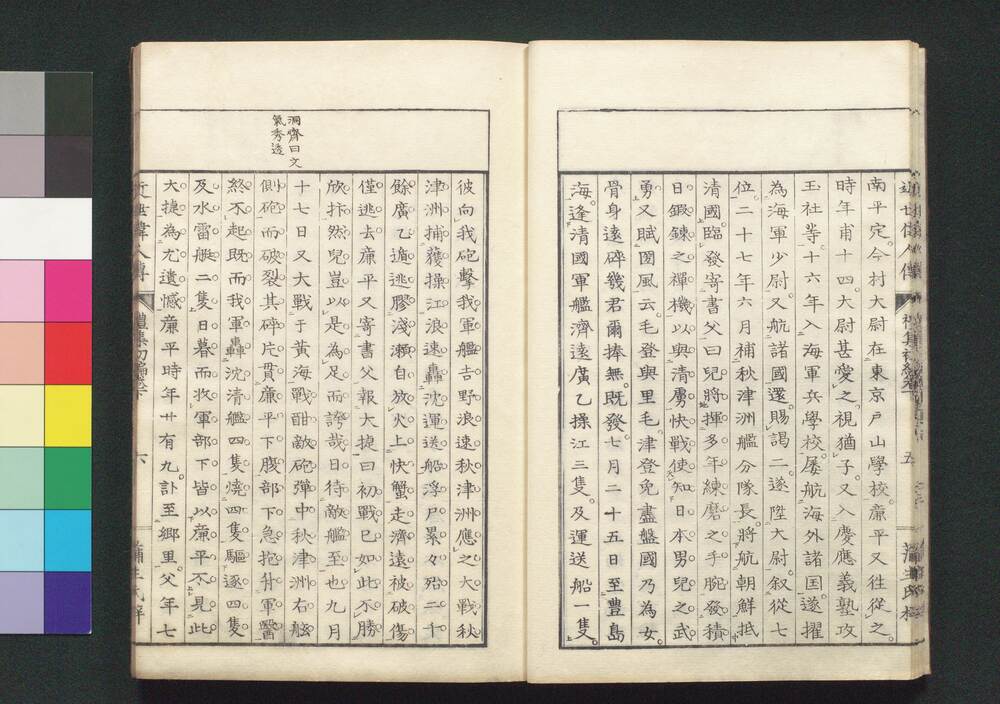 南平定。今村大尉在東京戸山學校。廉平又往從之。
時年甫十四。大尉甚愛之。視猶子。又入慶應義塾攻
玉社等。十六年入海軍兵學校。屡航海外諸国。遂擢
為海軍少尉。又航諸國還。賜謁二。遂陞大尉。叙從七
位。二十七年六月補秋津洲艦分隊長。將航朝鮮抵
清國。臨發寄書父曰。兒將揮多年練磨之手腕。發積
日鍛錬之禪機。以與清虜快戰。使知日本男兒之武
勇。又賦國風云。毛登與里毛津登免盡盤國乃為女
骨身遠碎幾君爾捧無。既發。七月二十五日至豊島
海。逢清國軍艦濟遠廣乙操江三隻。及運送船一隻。
洞齋曰文
氣秀逸
彼向我砲擊。我軍艦吉野浪速秋津洲應之大戰。秋
津洲捕獲操江。浪速轟沈運送船。浮尸累々殆二千
餘。廣乙遁逃膠淺瀬。自放火上快蟹走。濟遠被破傷
僅逃去。廉平又寄書父報大捷曰。初戰已如此。不勝
欣抃。然兒豈以是為足而誇哉。日待敵艦至也。九月
十七日又大戰于黄海。戰酣敵砲彈中秋津洲右舷
側砲而破裂。其碎片貫廉平下腹部下。急抱付軍醫
終不起。既而我軍轟沈清艦四隻。燒四隻。驅逐四隻
及水雷艇二隻。日暮而收軍。部下皆以廉平不見此
大捷為尤遺憾。廉平時年廿有九。訃至郷里。父年七